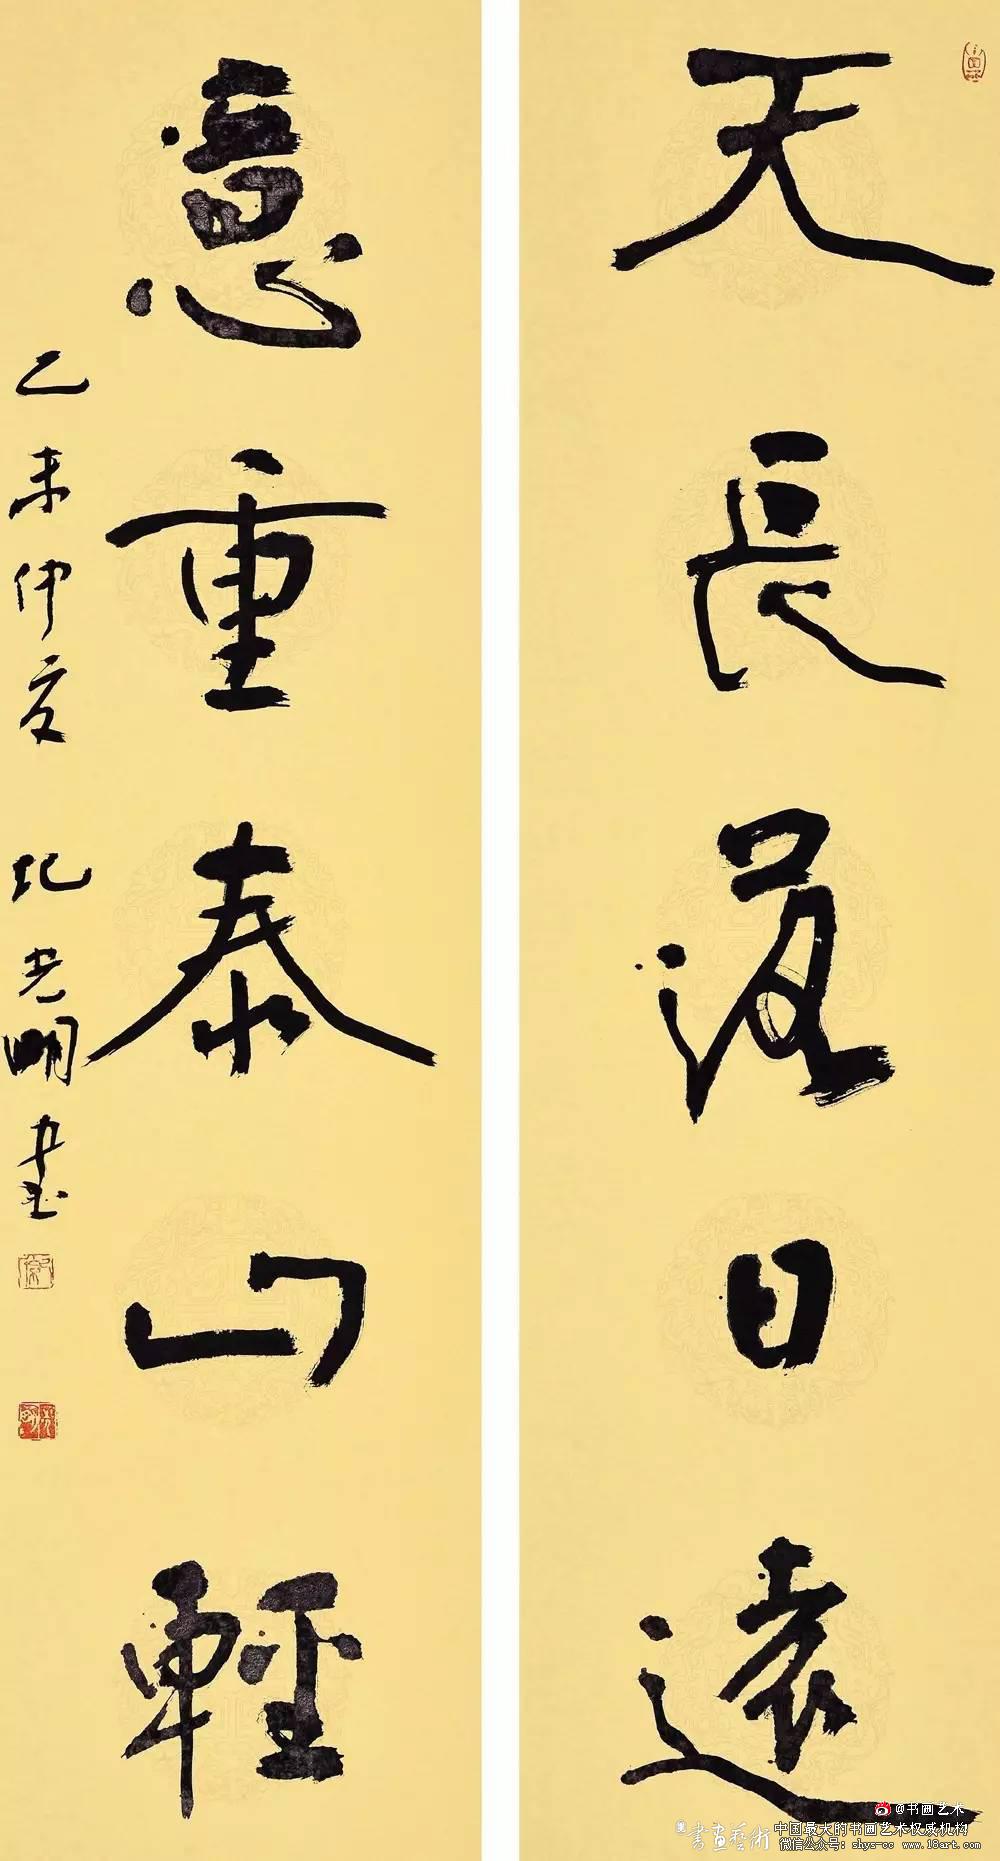 天長落日遠
意重泰山輕
乙未仲夏 纪光明書
@书画艺术
書畫藝術
中国最大的书画艺术权威机构
微信公众号：shys-cc www.18art.com